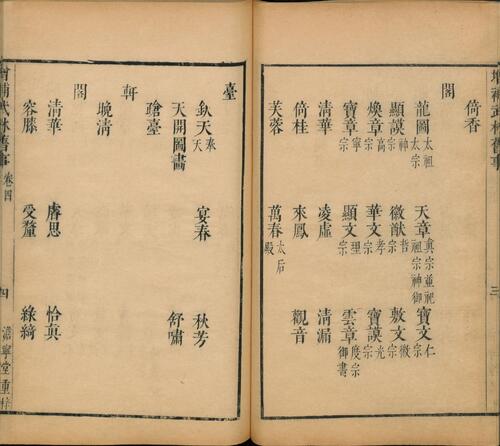 增補武林舊事 三
倚香
閣
龍圖 太祖太宗 天章 真宗並祀祖宗神御 寶文 仁宗
顯謨 神宗 徽猷 哲宗 敷文 徽宗
煥章 高宗 華文 孝宗 寶謨 光宗
寶章 寧宗 顯文 理宗 雲章 度宗御書
清華 凌虛 清漏
倚桂 來鳳 觀音
芙蓉 萬春 太后殿
臺
欽天 奉天 宴春 秋芳
天開圖畫 舒嘯
蹌臺
軒
晚清
閣
清華 睿思 怡真
容膝 受釐 綠綺
增補武林舊事 卷四 四 澹寧堂重梓